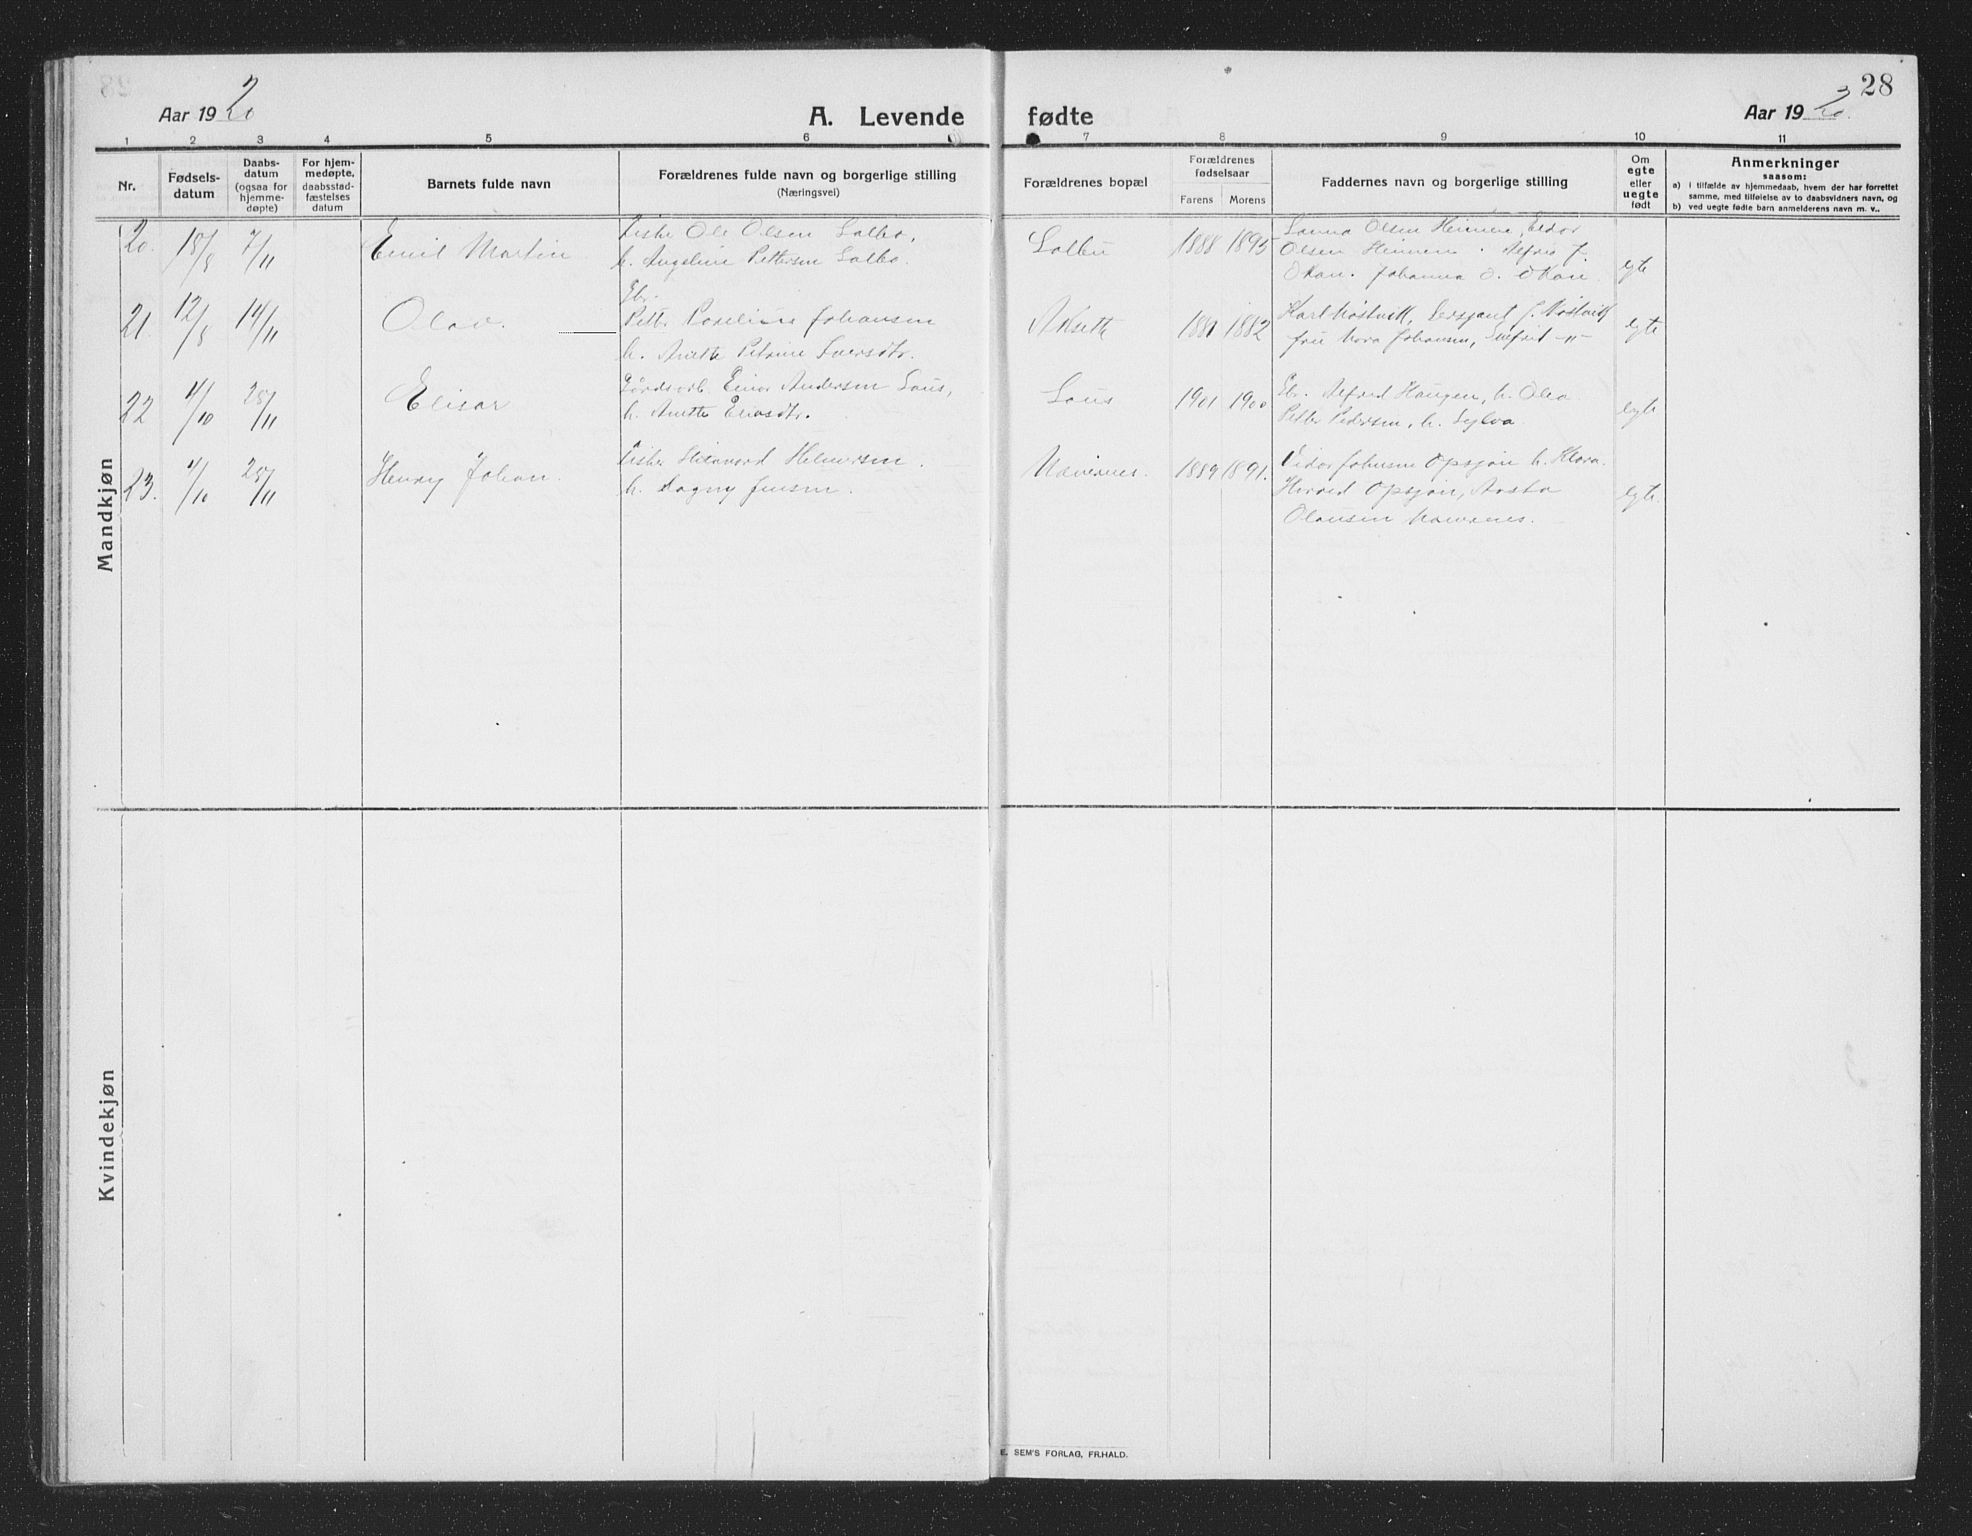 28
Aar 1920
A. Levende
fødte
Aar 1920.
1 2 3 4 5 6 7 8 9 10 11
Nr.
Fødsels-
datum
Daabs-
datum
(ogsaa for
hjemme-
døpte)
For hjem-
medøpte,
daabsstad-
fæstelses
datum
Barnets fulde navn
Forældrenes fulde navn og borgerlige stilling
(Næringsvei)
Forældrenes bopæl
Forældrenes
fødselsaar
Farens Morens
Faddernes navn og borgerlige stilling
Om
egte
eller
uegte
født
Anmerkninger
saasom:
a) i tilfælde av hjemmedaab, hvem der har forrettet
samme, med tilføielse av to daabsvidners navn, og
b) ved uegte fødte barn anmelderens navn m. v..
Mandkjøn
20. 18/8 7/11 Emil Martin
Fisker Ole Olsen Salbu,
h. Angeline Pettersen Salbu.
Salbu 1888 1895
Sanna Olsen Heimen, Eidor
Olsen Heimen. Alfred J.
Okan. Johanna O. Okan.
egte
21. 12/8 14/11 Olav.
Gbr.
Petter Johansen
h. Anette Petrine
1881 1882
Karl Nøstvik, Sersjant J. Nøstvik
fru Nora Johansen, -"-
egte
22 4/10 28/11 Elisar
Einar Andersen Saus,
h. Anette
Saus 1901 1900
Gbr. Alfred Haugen, h. Olea
Petter Pedersen, h. Sylva
egte
23. 4/10 28/11 Henry Johan.
Fisker Helmersen.
h. Dagny Jensen.
1889 1891.
Eidor Johnsen Opsjøn h. Klara.
Opsjøn, Aasta
Olausen
egte.
Kvindekjøn
E. SEM'S FORLAG, FR.HALD.